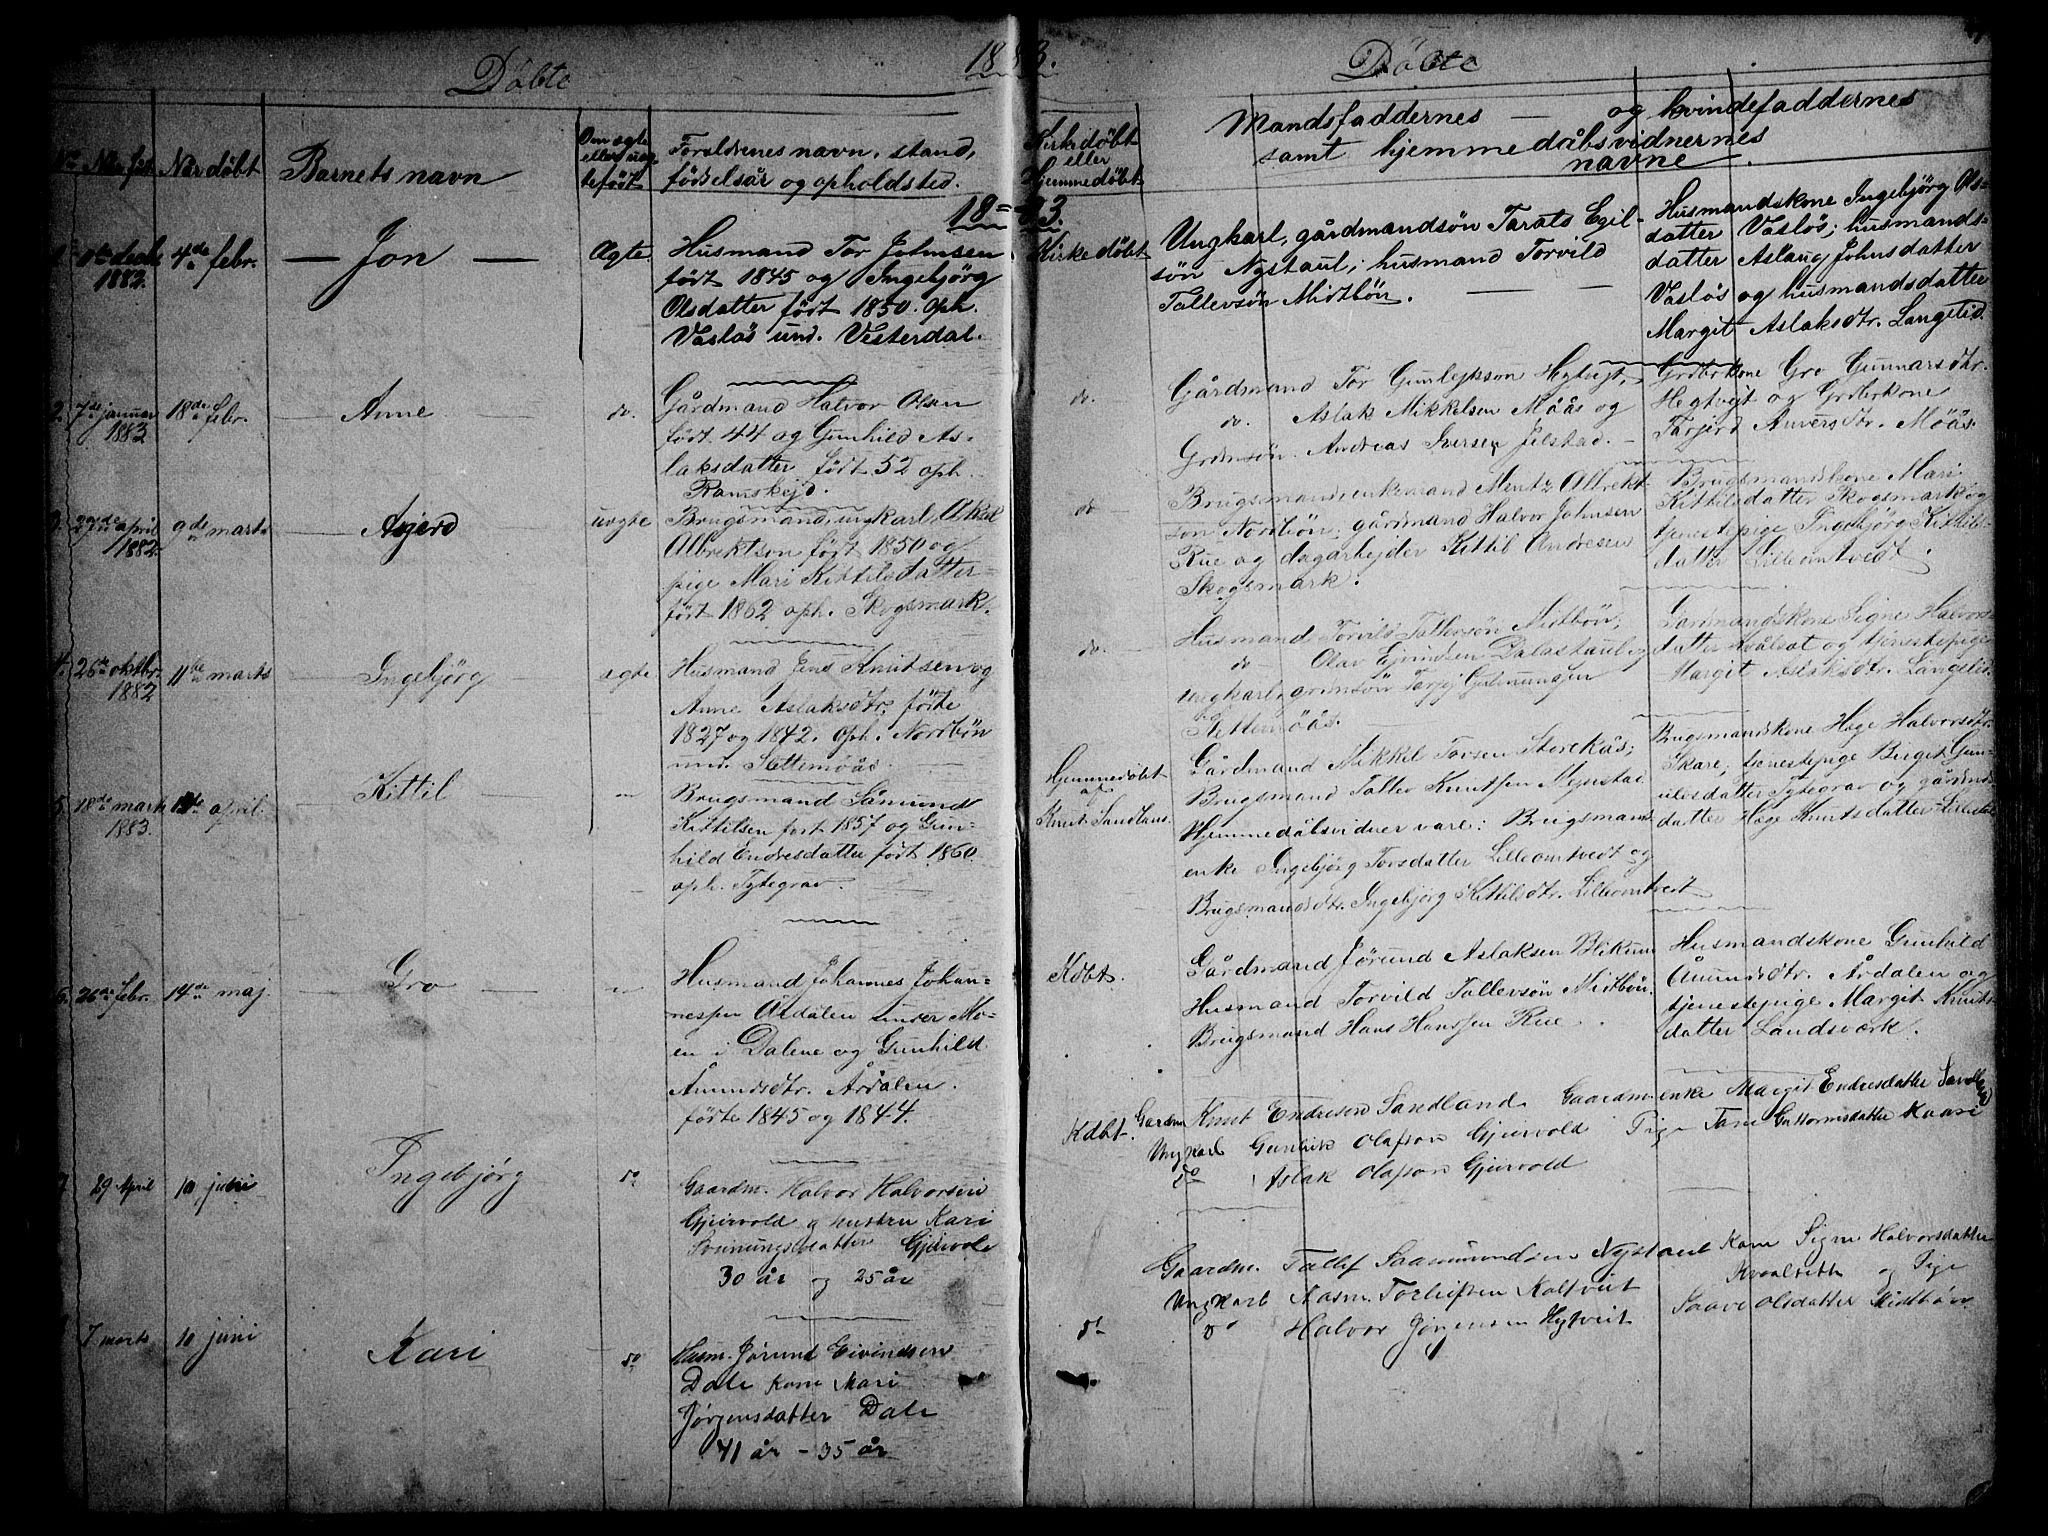 1883.
Døbte
Døbte
No
Når døbt
Barnets navn
Om ægte eller uægte født
Forældrenes navn, stand, fødselsår og opholdsted.
Kirkedøbt eller Hjemmedøbt
Mandsfaddernes — og kvindefaddernes
samt hjemmedåbsvidnernes
navne
18=83.
1882.
4de febr.
— Jon —
Ægte
Husmand Tor Johnsen
født 1845 og Ingebjörg
Olsdatter født 1850. Oph.
Vaslös und. Vesterdal.
Kirkedøbt
Ungkarl, gårdmandsön Tarald Egil-
sön Nystaul; husmand Torvild
Tallevsön Midtbön.
Husmandskone Ingebjörg Ols-
datter Vaslös; husmands-
datter Aslaug Johnsdatter
Vaslös og husmandsdatter
Margit Aslaksdtr. Langelid.
2.
7de januar
1883
18de febr.
— Anne —
do.
Gårdmand Halvor Olsen
født 44 og Gunhild As-
laksdatter født 52 oph.
Ramskejd.
do.
Gårdmand Tor Gunlejkson Hegtvejt,
do. Aslak Mikkelsen Möås og
Grdmsön. Andreas Iversen Jelstad. —
Grdbrkone Gro Gunnarsdtr.
Hegtvejt og Grdbrkone
Tarjerd Anversdtr. Möås.
3.
27de april
1882.
9de marts
— Asjerd
uægte
Brugsmand, ungkarl, Aksel
Albrektson født 1850 og
pige Mari Kittilsdatter
født 1862 oph. Skogsmark.
do
Brugsmand, enkemand Mentz Albrekt-
son Nordbön; gårdmand Halvor Johnsen
Rue og dagarbejder Kittil Andresen
Skogsmark.
Brugsmandskone Mari
Kittilsdatter Skogsmark og
tjenestepige Ingebjörg Kittils-
datter Lilleomtvedt.
4.
26de oktbr.
1882
11te marts
— Ingebjörg —
ægte
Husmand Jens Knutsen og
Anne Aslaksdtr. fødte
1827 og 1842. Oph. Nordbön
und. Settemöås.
do.
Husmand Torvild Tallevsön Midtbön,
do Olav Ejvindsen Dalastaul og
ungkarl, grdmsön Tarjej Gutmundsen
Settemöås.
Gårdmandskone Signe Halvors-
datter Kvålsot og tjenestepige
Margit Aslaksdtr. Langelid.
5.
18de marts
1883.
april.
— Kittil —
"
Brugsmand Såmund
Kittilsen født 1857 og Gun-
hild Endresdatter født 1860
oph. Tytegrav.
Hjemmedøbt
af
Knut Sandland.
Gårdmand Mikkel Torsen Storekås;
Brugsmand Tallev Knutsen Mejestad
Hjemmedåbsvidner vare: Brugsmands
enke Ingebjörg Torsdatter Lilleomtvedt og
Brugsmandsdtr. Ingebjörg Kittilsdtr. Lilleomtvedt
Brugsmandskone Hæge Halvorsdtr.
Skare; tjenestepige Birgit Gun-
ulesdatter Tytegrav og gårdmds
datter Hæge Knutsdatter
6.
26de febr.
14de maj.
— Gro —
"
Husmand Johannes Johan-
nesen Årdalen under Mo-
en i Dalene og Gunhild
Åmundsdtr. Årdalen.
fødte 1845 og 1844.
Kdbt.
Gårdmand Jörund Aslaksen Blikum
Husmand Torvild Tallevsön Midtbön.
Brugsmand Hans Hansen Rue.
Husmandskone Gunhild
Åmundsdtr. Årdalen og
tjenestepige Margit Knuts-
datter Landsværk.
7
29 April
10 juni
Ingebjørg
do
Gaardm. Halvor Halvorsen
Gjeirvold og hustru Kari
Sveinungsdatter Gjeirvold
30 år og 25 år
Kdbt.
Gaardm Knut Endresen Sandland
Ungkarl Gunleik Olafson Gjeirvold
do Aslak Olafson Gjeirvold
Gaardm.enke Margit Endresdatter Sandland
Pige Tone Guttormsdatter Kaasi
7 marts
10 juni
Kari
do
Husm. Jørund Eivindsen
Dale Kone Mari
Jørgensdatter Dale
41 år – 35 år
do
Gaardm. Tallef Saamundsen Nystaul
Ungkarl Aasm. Torleifsen Kaltveit
do Halvor Jørgensen Hegtveit
Kone Signe Halvorsdatter
og Pige
Saave Olsdatter Midtbøen